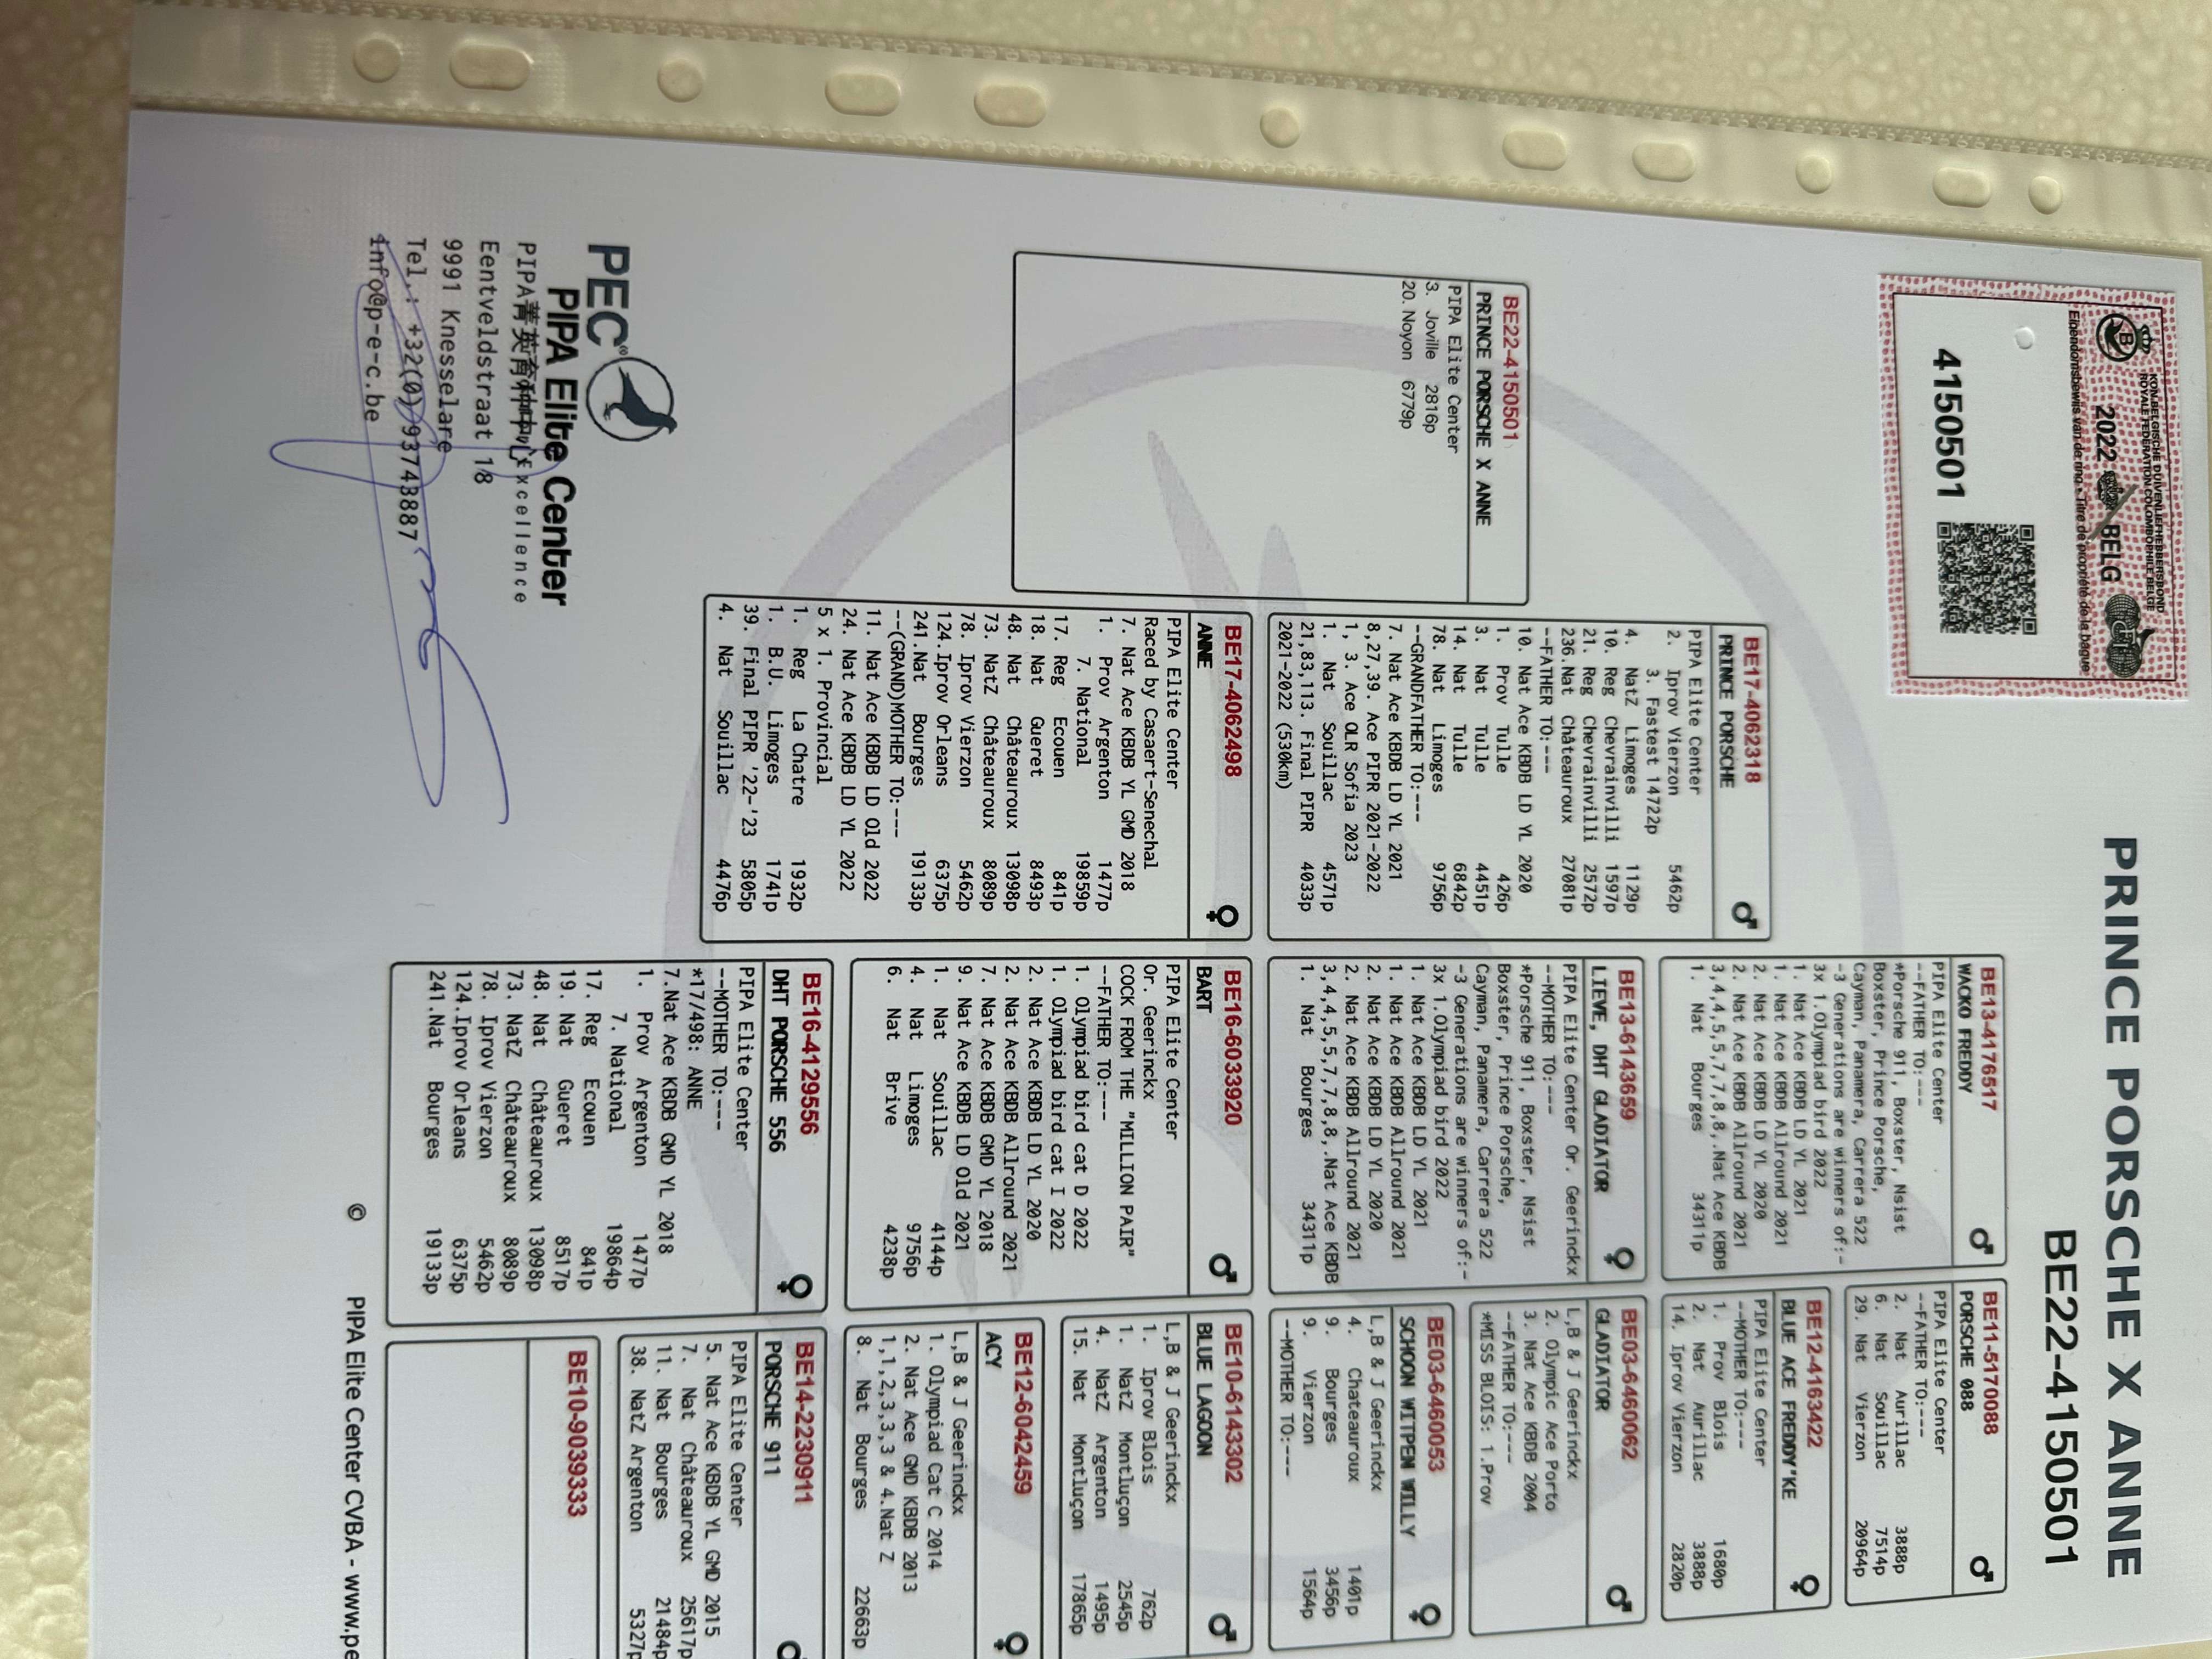 PRINCE PORSCHE X ANNE
BE22-4150501
KON.BELGISCHE DUIVENLIEFHEBBERSBOND
ROYALE FEDERATION COLOMBOPHILE BELGE
2022 BELG
Eigendomsbewijs van de ring - Titre de propriété de la bague
4150501
BE22-4150501
PRINCE PORSCHE X ANNE
PIPA Elite Center
3. Joville 2816p
20. Noyon 6779p
PEC®
PIPA Elite Center
PIPA菁英育种中心 Excellence
Eentveldstraat 18
9991 Knesselare
Tel.: +32(0)93743887
info@p-e-c.be
BE17-4062318
PRINCE PORSCHE ♂
PIPA Elite Center
2. Iprov Vierzon 5462p
3. Fastest 14722p
4. NatZ Limoges 1129p
10. Reg Chevrainvilli 1597p
21. Reg Chevrainvilli 2572p
236.Nat Châteauroux 27081p
--FATHER TO:---
10. Nat Ace KBDB LD YL 2020
1. Prov Tulle 426p
3. Nat Tulle 4451p
14. Nat Tulle 6842p
78. Nat Limoges 9756p
--GRANDFATHER TO:---
7. Nat Ace KBDB LD YL 2021
8,27,39. Ace PIPR 2021-2022
1, 3. Ace OLR Sofia 2023
1. Nat Souillac 4571p
21,83,113. Final PIPR 4033p
2021-2022 (530km)
BE17-4062498
ANNE ♀
PIPA Elite Center
Raced by Casaert-Senechal
7. Nat Ace KBDB YL GMD 2018
1. Prov Argenton 1477p
7. National 19859p
17. Reg Ecouen 841p
18. Nat Gueret 8493p
48. Nat Châteauroux 13098p
73. NatZ Châteauroux 8089p
78. Iprov Vierzon 5462p
124.Iprov Orleans 6375p
241.Nat Bourges 19133p
--(GRAND)MOTHER TO:---
11. Nat Ace KBDB LD Old 2022
24. Nat Ace KBDB LD YL 2022
5 x 1. Provincial
1. Reg La Chatre 1932p
1. B.U. Limoges 1741p
39. Final PIPR '22-'23 5805p
4. Nat Souillac 4476p
BE13-4176517
WACKO FREDDY ♂
PIPA Elite Center
--FATHER TO:---
*Porsche 911, Boxster, Nsist
Boxster, Prince Porsche,
Cayman, Panamera, Carrera 522
-3 Generations are winners of:-
3x 1.Olympiad bird 2022
1. Nat Ace KBDB LD YL 2021
1. Nat Ace KBDB Allround 2021
2. Nat Ace KBDB LD YL 2020
2. Nat Ace KBDB Allround 2021
3,4,4,5,5,7,7,8,8,.Nat Ace KBDB
1. Nat Bourges 34311p
BE13-6143659
LIEVE, DHT GLADIATOR ♀
PIPA Elite Center Or. Geerinckx
--MOTHER TO:---
*Porsche 911, Boxster, Nsist
Boxster, Prince Porsche,
Cayman, Panamera, Carrera 522
-3 Generations are winners of:-
3x 1.Olympiad bird 2022
1. Nat Ace KBDB LD YL 2021
1. Nat Ace KBDB Allround 2021
2. Nat Ace KBDB LD YL 2020
2. Nat Ace KBDB Allround 2021
3,4,4,5,5,7,7,8,8,.Nat Ace KBDB
1. Nat Bourges 34311p
BE16-6033920
BART ♂
PIPA Elite Center
Or. Geerinckx
COCK FROM THE "MILLION PAIR"
--FATHER TO:---
1. Olympiad bird cat D 2022
1. Olympiad bird cat I 2022
2. Nat Ace KBDB LD YL 2020
2. Nat Ace KBDB Allround 2021
7. Nat Ace KBDB GMD YL 2018
9. Nat Ace KBDB LD Old 2021
1. Nat Souillac 4144p
4. Nat Limoges 9756p
6. Nat Brive 4238p
BE16-4129556
DHT PORSCHE 556 ♀
PIPA Elite Center
--MOTHER TO:---
*17/498: ANNE
7.Nat Ace KBDB GMD YL 2018
1. Prov Argenton 1477p
7. National 19864p
17. Reg Ecouen 841p
19. Nat Gueret 8517p
48. Nat Châteauroux 13098p
73. NatZ Châteauroux 8089p
78. Iprov Vierzon 5462p
124.Iprov Orleans 6375p
241.Nat Bourges 19133p
BE11-5170088
PORSCHE 088 ♂
PIPA Elite Center
--FATHER TO:---
2. Nat Aurillac 3888p
6. Nat Souillac 7514p
29. Nat Vierzon 20964p
BE12-4163422
BLUE ACE FREDDY"KE ♀
PIPA Elite Center
--MOTHER TO:---
1. Prov Blois 1680p
2. Nat Aurillac 3888p
14. Iprov Vierzon 2820p
BE03-6460062
GLADIATOR ♂
L,B & J Geerinckx
2. Olympic Ace Porto
3. Nat Ace KBDB 2004
--FATHER TO:---
*MISS BLOIS: 1.Prov
BE03-6460053
SCHOON WITPEN WILLY ♀
L,B & J Geerinckx
4. Chateauroux 1401p
9. Bourges 3456p
9. Vierzon 1564p
--MOTHER TO:---
BE10-6143302
BLUE LAGOON ♂
L,B & J Geerinckx
1. Iprov Blois 762p
1. NatZ Montluçon 2545p
4. NatZ Argenton 1495p
15. Nat Montluçon 17865p
BE12-6042459
ACY ♀
L,B & J Geerinckx
1. Olympiad Cat C 2014
2. Nat Ace GMD KBDB 2013
1,1,2,3,3,3 & 4.Nat Z
8. Nat Bourges 22663p
BE14-2230911
PORSCHE 911 ♂
PIPA Elite Center
5. Nat Ace KBDB YL GMD 2015
7. Nat Châteauroux 25617p
11. Nat Bourges 21484p
38. NatZ Argenton 5327p
BE10-9039333
© PIPA Elite Center CVBA - www.pe